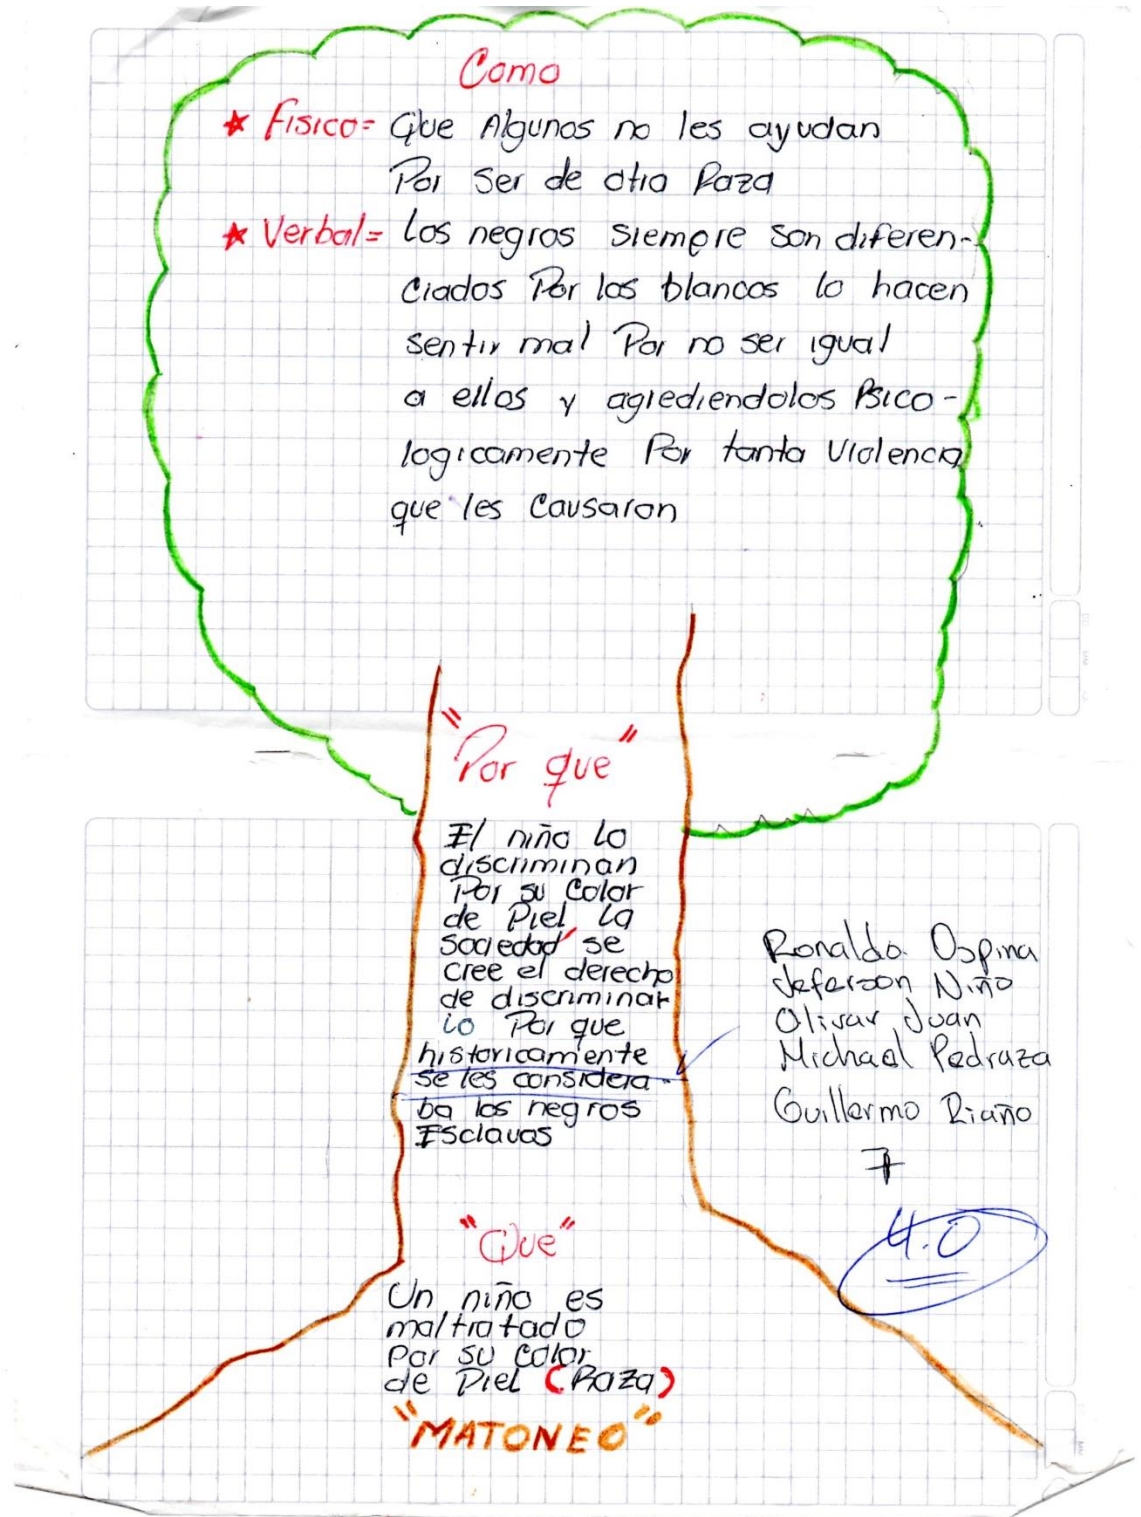 Como
★ Fisico= Que Algunos no les ayudan
Por ser de otra Raza
★ Verbal= los negros siempre son diferen-
ciados Por los blancos lo hacen
sentir mal Por no ser igual
a ellos y agrediendolos Psico-
logicamente Por tanta Violencia
que les Causaron
"Por que"
El niño Lo
discriminan
Por su Color
de Piel La
sociedad se
cree el derecho
de discriminar
Lo Por que
historicamente
se les considera-
ba los negros
Esclavos
Ronaldo Ospina
Jeferson Niño
Olivar Juan
Michael Pedraza
Guillermo Riaño
7
4.0
"Que"
Un niño es
maltratado
Por su Color
de Piel (Raza)
"MATONEO"